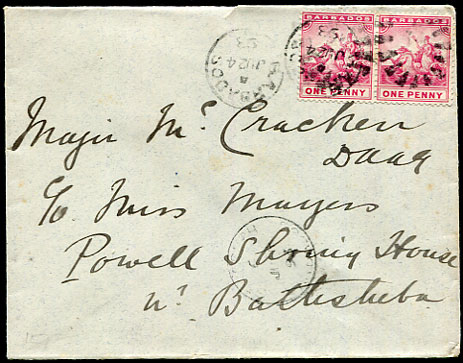 BARBADOS BARBADOS
ONE PENNY ONE PENNY
BARBADOS
A
JU 24
93
Major Mc Cracken
DAAG
c/o Miss Mayers
Powell Spring House
nr Bathsheba